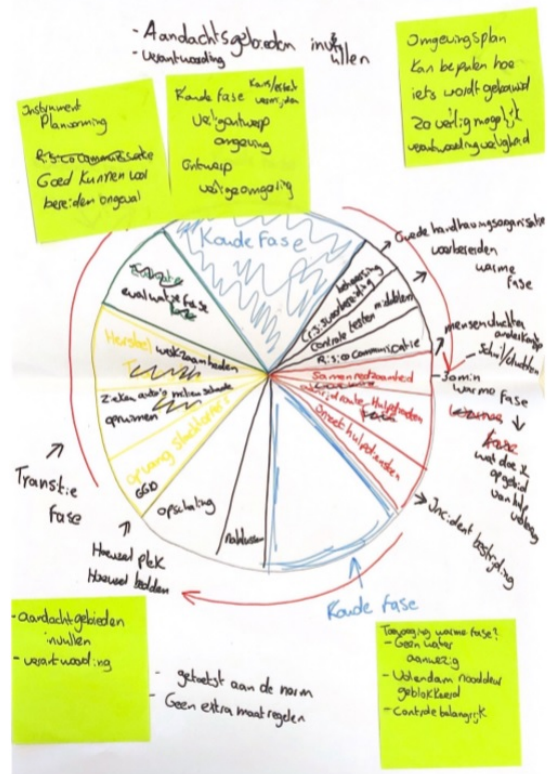 - Aandachtsgebieden invullen
- verantwoording
Omgevingsplan
Kan bepalen hoe
iets wordt gebouwd
zo veilig mogelijk
verantwoording veiligheid
Instrument
Planvorming
Risicocommunicatie
Goed kunnen voor
bereiden ongeval
Koude fase
Veilig ontwerp
omgeving
Ontwerp
veilige omgeving
Koude fase
evaluatie fase
Herstel werkzaamheden
opruimen
opvang slachtoffers
GGD
opschaling
beheersing
Crisisvoorbereiding
middelen
Controle testen
Risicocommunicatie
Samenredzaamheid
hulpdiensten
Goede handhavingsorganisatie
voorbereiden
warme
fase
mensen dichter
- Schuilplaatsen
- 30 min
warme fase
fase
wat doe je
op gebied
van hulp
Incident bestrijding
Transitie
fase
Hoeveel plek
Hoeveel bedden
Koude fase
- aandachtgebieden
invullen
- verantwoording
- getoetst aan de norm
- Geen extra maatregelen
warme fase?
- Geen water
aanwezig
- Volendam nooddeur
geblokkeerd
- Controle belangrijk